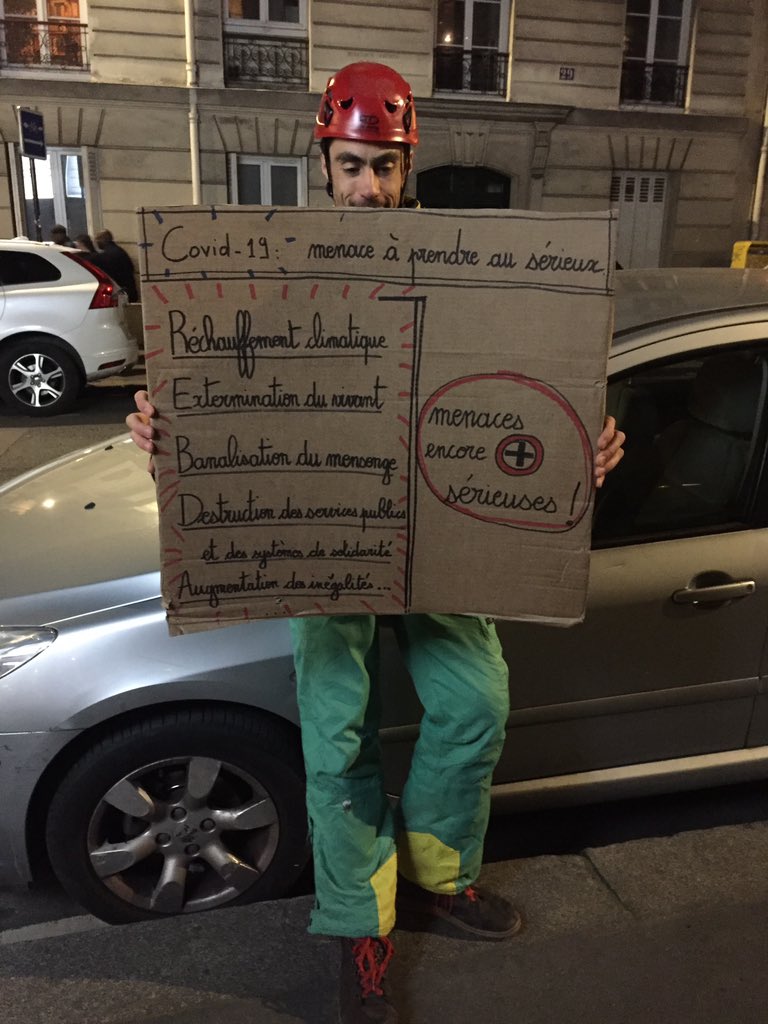 29
Covid-19: menace à prendre au sérieux
Réchauffement climatique
Extermination du vivant
Banalisation du mensonge
Destruction des services publics
et des systèmes de solidarité
Augmentation des inégalités...
menaces
encore +
sérieuses !